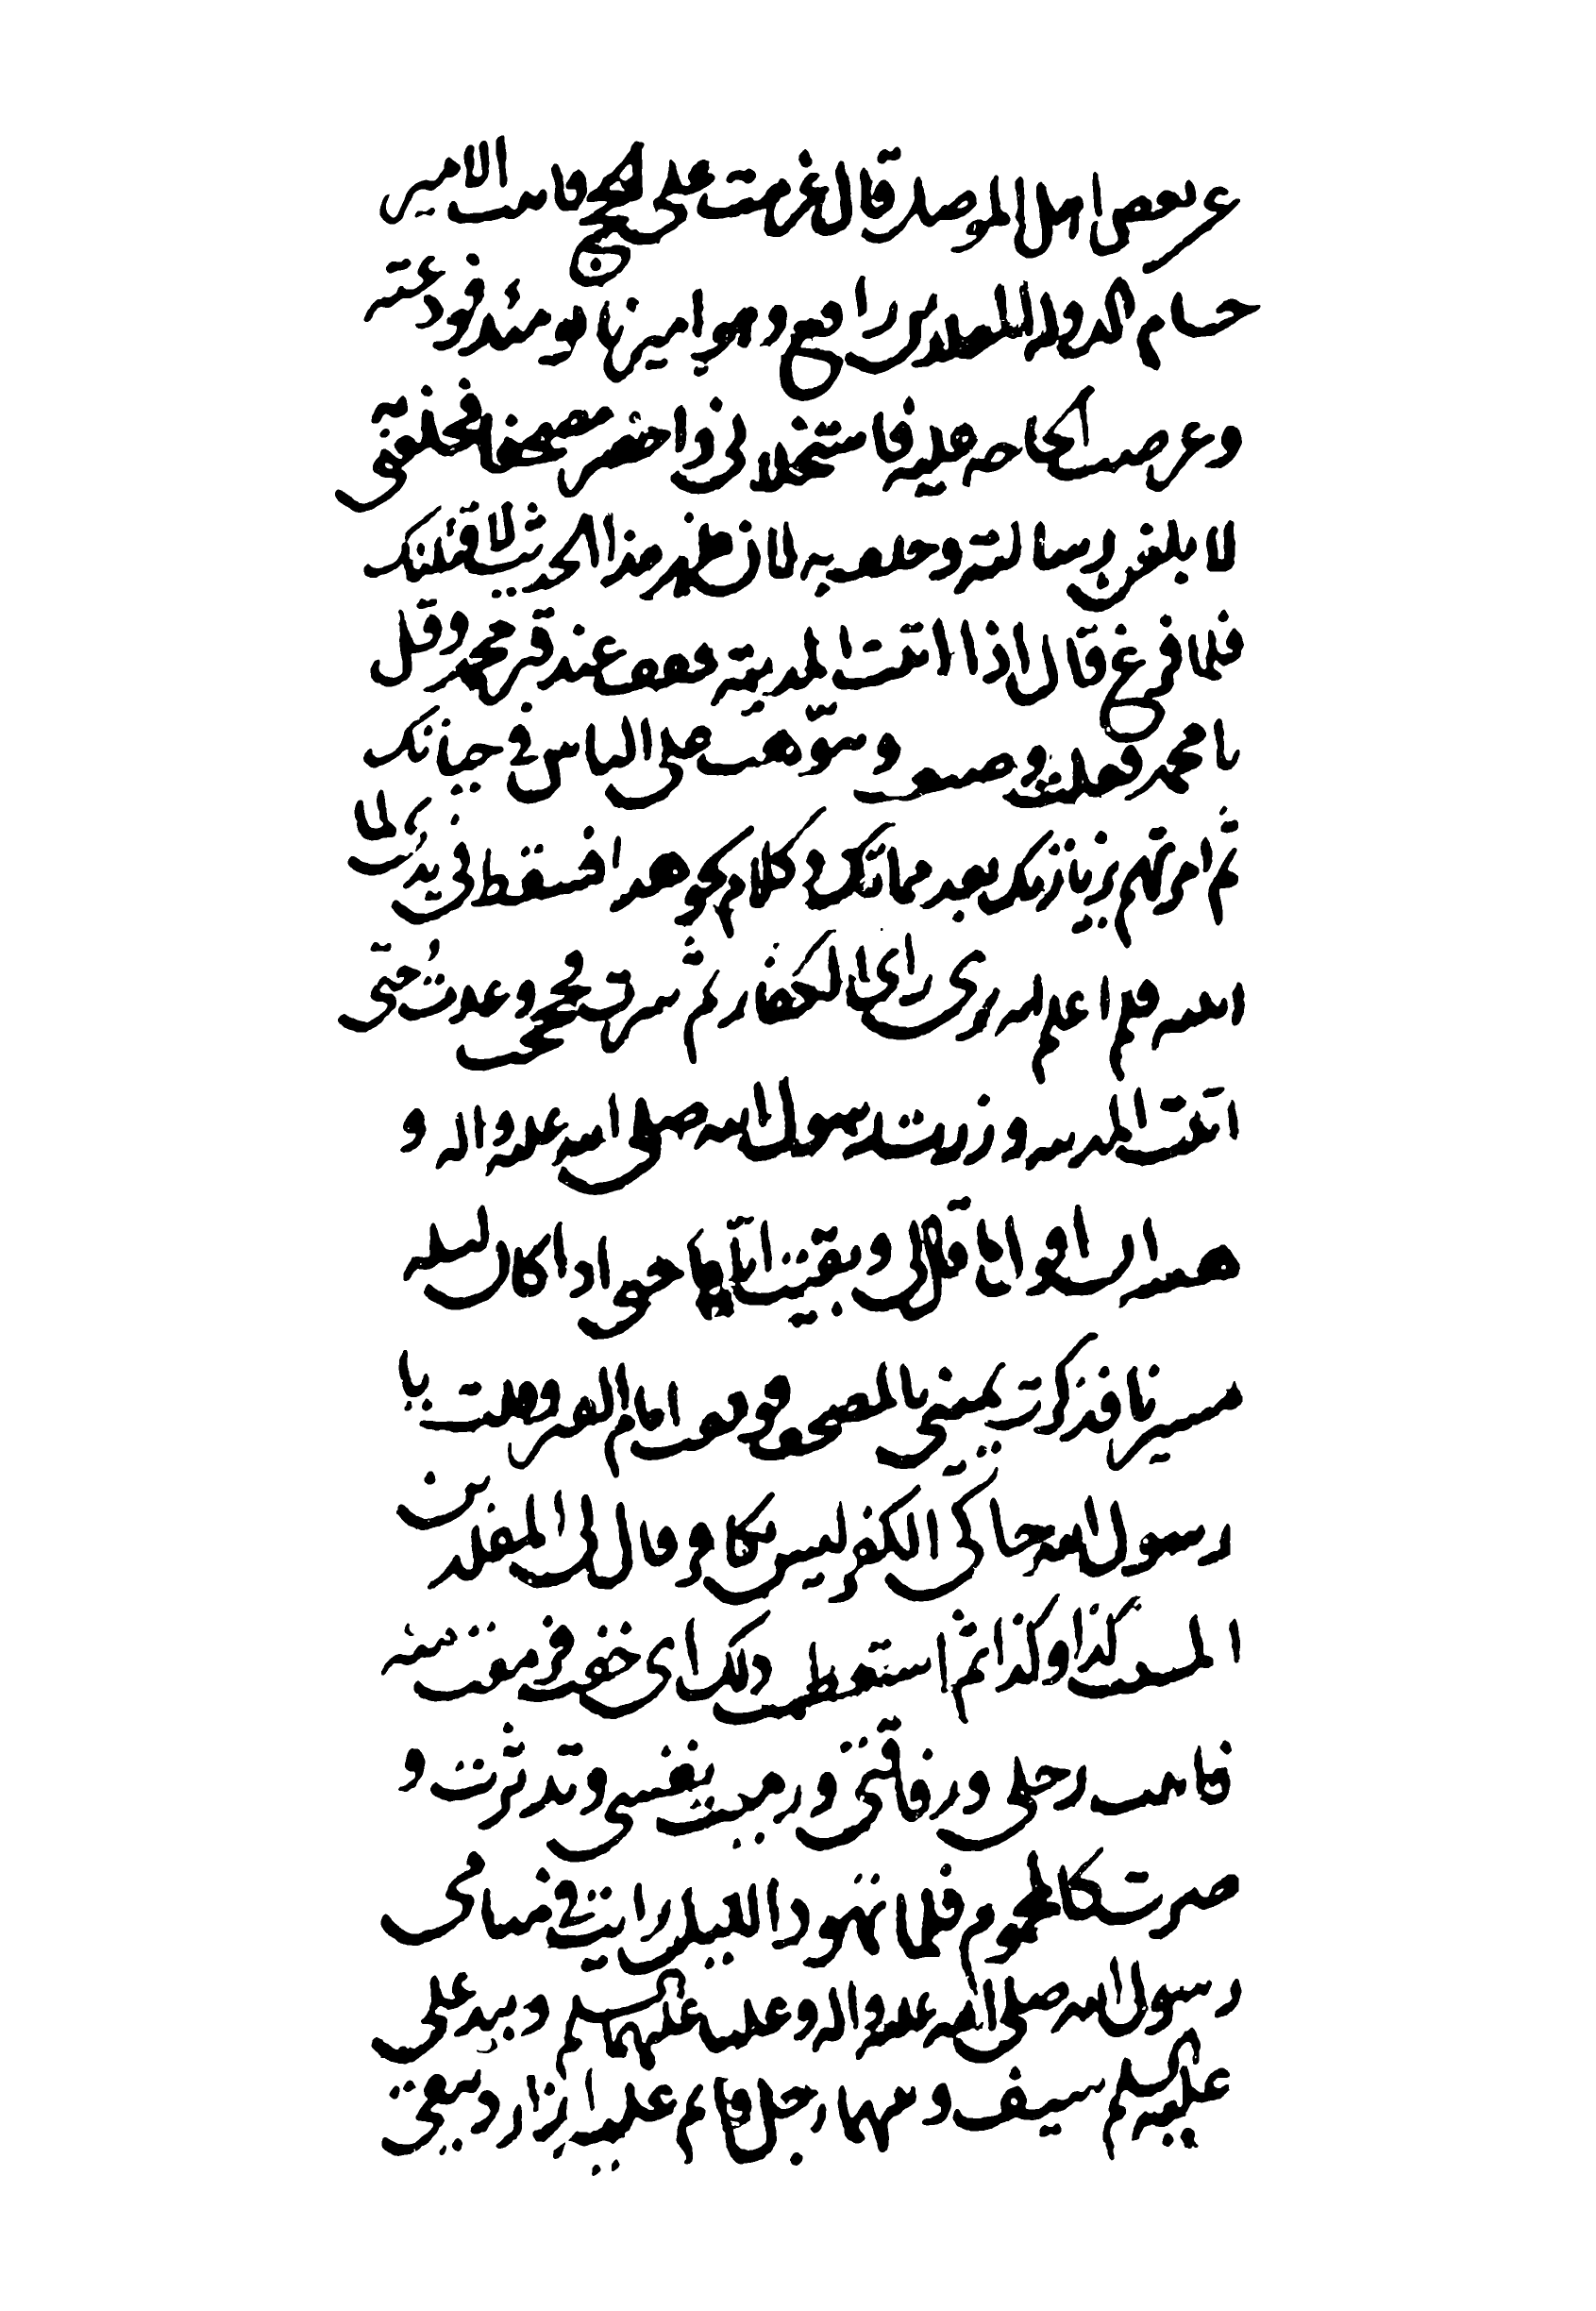 عن بعض اهل الموصل قال عزمت على الحج فاتيت الامير
حسام الدولة المقلد بن رافع وهو اميرنا يومئذ فودعته
وعرضت الحاجة عليه فاستخلا لى واحضر مصحفا فحلفنى
لا بلغن رسالته وحلف به لان ظهر هذا الحديث لاقتلنك
فلما فرغ قال اذا اتيت المدينة فقف عند قبر محمد وقل
يا محمد فعلت وصنعت وموهت على الناس في حياتك
ثم امرتهم بزيارتك بعد مماتك وكلام نحو هذا فسقط في يدي لما
اتيته فلم اعلم انه يرى راى الكفار ثم سرت فحججت وعدت حتى
اتيت المدينة وزرت رسول الله صلى الله عليه واله و
هبت ان اقول ما قال لى وبقيت اياما حتى اذا كان ليلة
مسيرنا فذكرت يمينى بالمصحف فوقفت امام القبر وقلت يا
رسول الله حاكى الكفر ليس بكافر قال لى المقلد بن
المسيب كذا وكذا ثم استعظمت ذلك اى خفت فزعت منه
فاتيت رحلى ورفاقتى ورميت بنفسى وتدثرت و
صرت كالمحموم فلما تهور الليل رايت في منامى
رسول الله صلى الله عليه واله وعليا عليهما السلم وبيد على
عليه السلم سيف وبينهما رجل قائم عليه ازار دبيقى